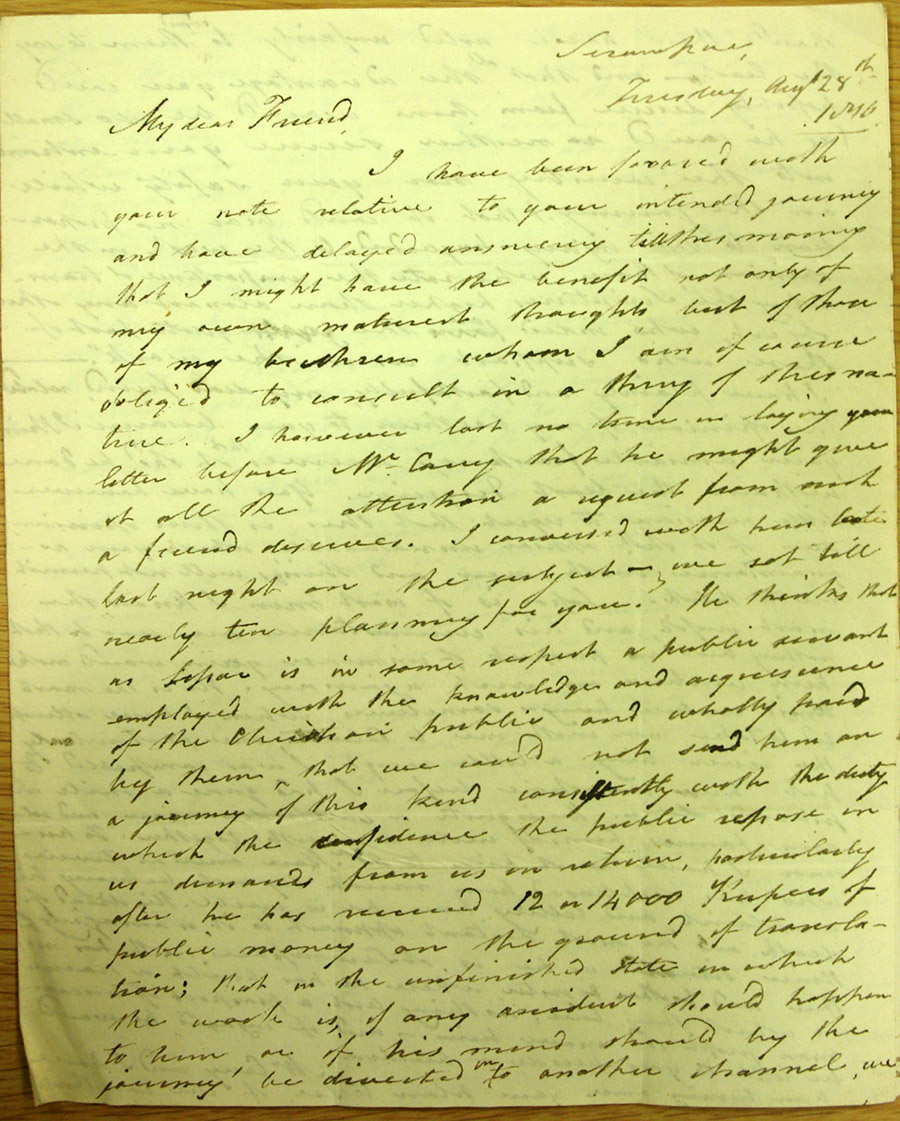 Serampore,
Tuesday, Augt 28th
1810.
My dear Friend,
I have been favored with
your note relative to your intended journey
and have delayed answering till this morning
that I might have the benefit not only of
my own maturest thoughts but of those
of my brethren whom I am of course
obliged to consult in a thing of this na-
ture. I however lost no time in laying your
letter before Mr. Carey that he might give
it all the attention a request from such
a friend deserves. I conversed with him late
last night on the subject – we sat till
nearly ten planning for you. He thinks that
as Lassar is in some respect a public servant
employed with the knowledge and acquiescence
of the Christian public and wholly paid
by them, that we could not send him on
a journey of this kind consistently with the duty
which the confidence the public repose in
us demands from us in return, particularly
after he has received 12 or 14000 Rupees of
public money on the ground of transla-
tion; that in the unfinished state in which
the work is, if any accident should happen
to him or if his mind should by the
journey be diverted into another channel, we